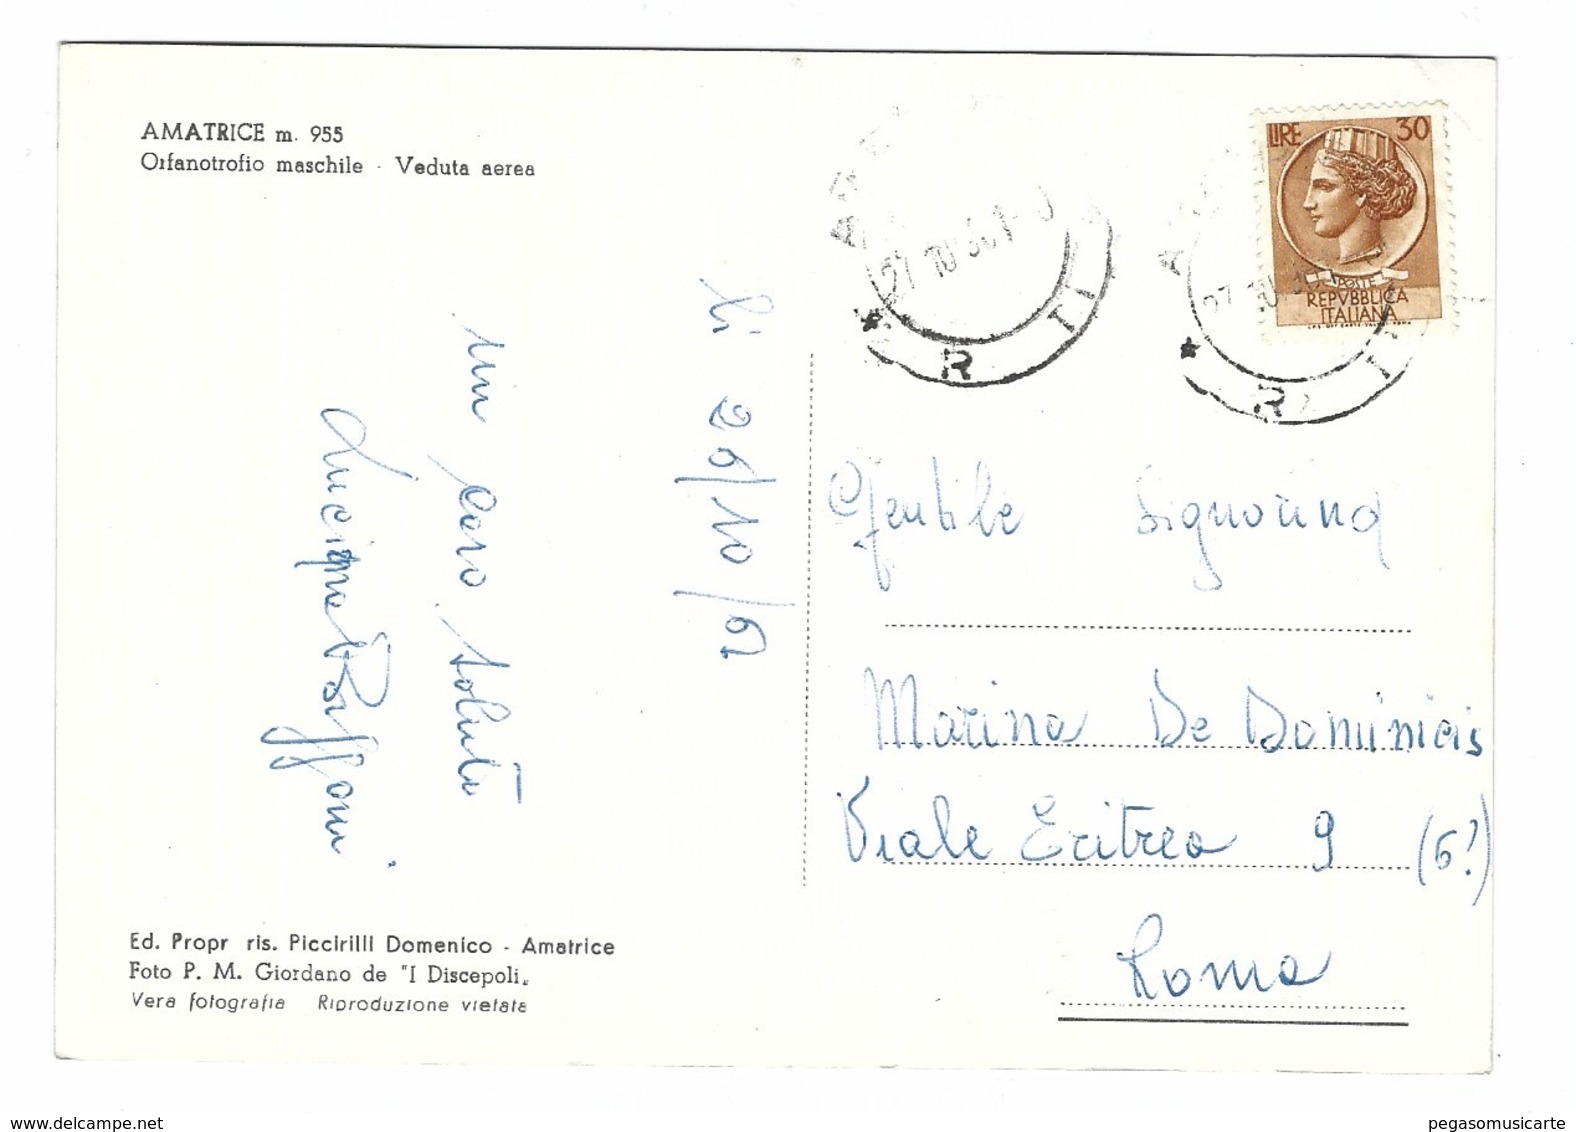 AMATRICE m. 955
Orfanotrofio maschile - Veduta aerea
li 26/10/62
un caro saluto
Luciana Boffoni
Ed. Propr ris. Piccirilli Domenico - Amatrice
Foto P. M. Giordano de "I Discepoli"
Vera fotografia Riproduzione vietata
LIRE 30
POSTE
REPVBBLICA
ITALIANA
27 10
R I T I
27
R
Gentile Signorina
Marina De Dominicis
Viale Eritrea 9 (6?)
Roma
www.delcampe.net
pegasomusicarte